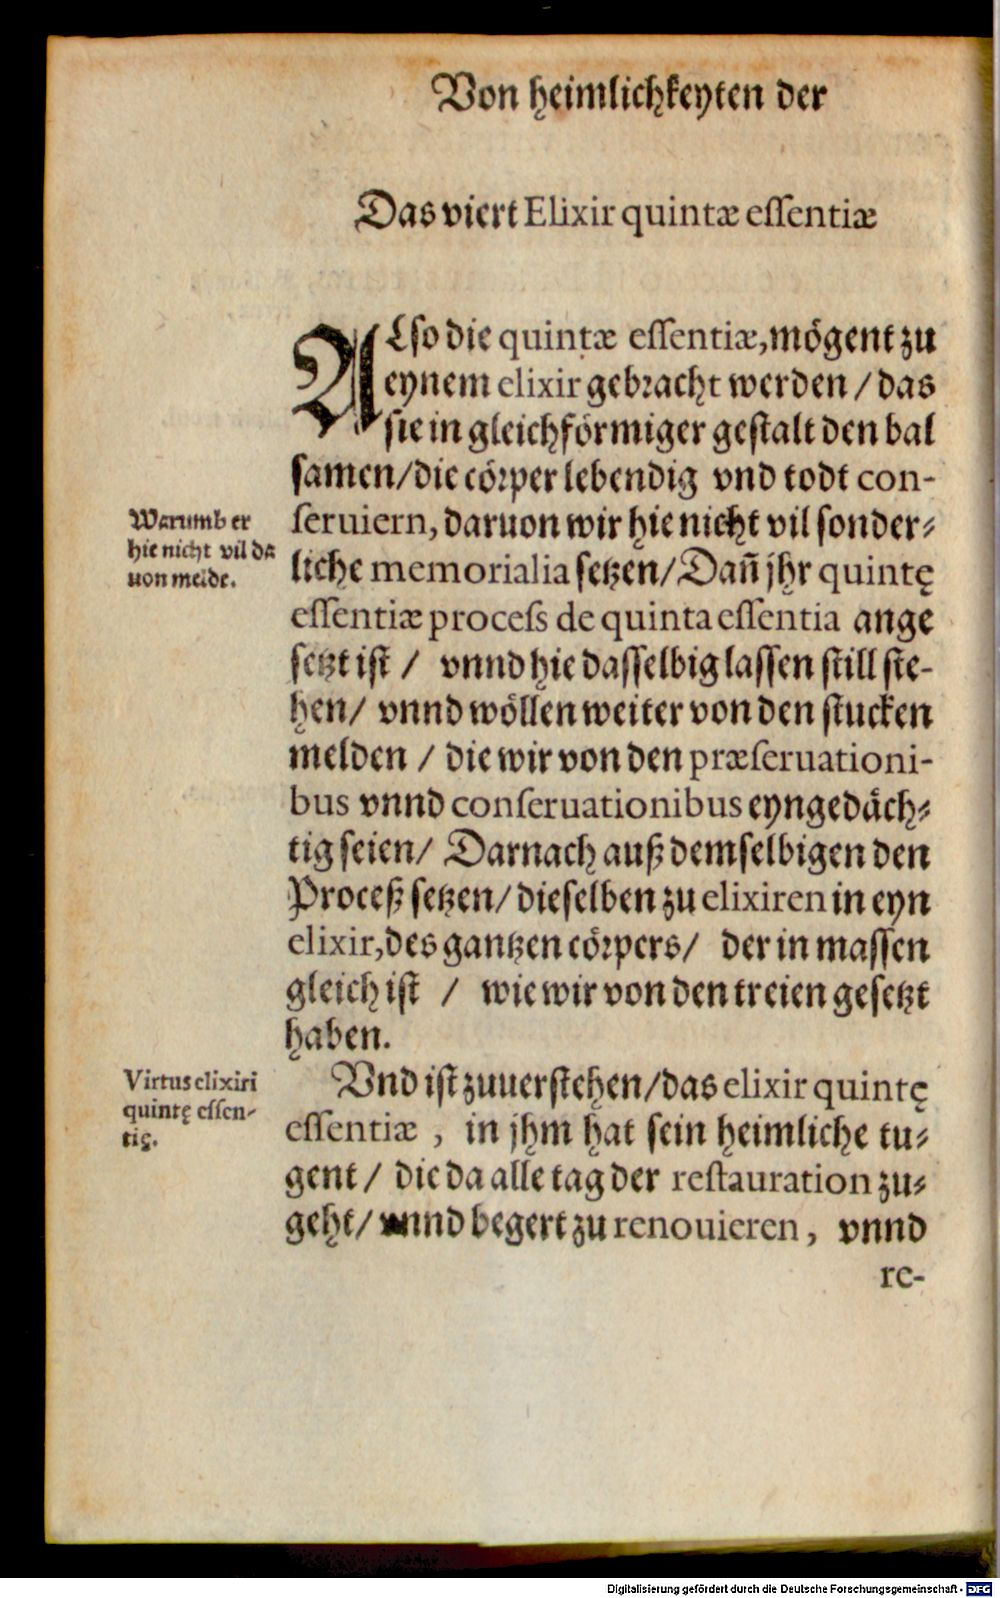 Von heimlichkeyten der
Das viert Elixir quintæ eſſentiæ
ALſo die quintæ eſſentiæ, mögent zu
eynem elixir gebꝛacht werden / das
ſie in gleichförmiger geſtalt den bal
ſamen/die cöꝛper lebendig vnd todt con-
ſeruiern, daruon wir hie nicht vil ſonder⸗
liche memorialia ſetzen/Dañ jhr quintę
eſſentiæ proceſs de quinta eſſentia ange
ſetzt iſt / vnnd hie daſſelbig laſſen ſtill ſte-
hen/ vnnd wöllen weiter von den ſtucken
melden / die wir von den præſeruationi-
bus vnnd conſeruationibus eyngedäch⸗
tig ſeien/ Darnach auß demſelbigen den
Proceß ſetzen/dieſelben zu elixiren in eyn
elixir,des gantzen cöꝛpers/ der in maſſen
gleich iſt / wie wir von den treien geſetzt
haben.
Warumb er
hie nicht vil da
uon melde.
Vnd iſt zuuerſtehen/das elixir quintę
eſſentiæ , in jhm hat ſein heimliche tu⸗
gent/ die da alle tag der reſtauration zu⸗
geht/ vnnd begert zu renouieren, vnnd
re-
Virtus elixiri
quintę eſſen-
tię.
Digitalisierung gefördert durch die Deutsche Forschungsgemeinschaft - DFG